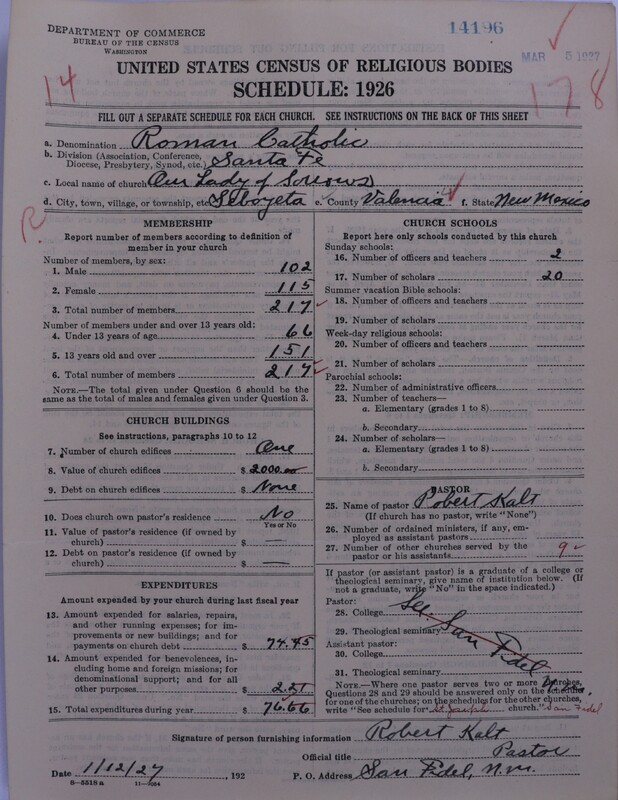 DEPARTMENT OF COMMERCE
BUREAU OF THE CENSUS
WASHINGTON
14196
MAR 5 1927
14
178
UNITED STATES CENSUS OF RELIGIOUS BODIES
SCHEDULE: 1926
FILL OUT A SEPARATE SCHEDULE FOR EACH CHURCH. SEE INSTRUCTIONS ON THE BACK OF THIS SHEET
a. Denomination Roman Catholic
b. Division (Association, Conference,
Diocese, Presbytery, Synod, etc.) Santa Fe
c. Local name of church Our Lady of Sorrows
d. City, town, village, or township, etc. Seboyeta e. County Valencia f. State New Mexico
R
MEMBERSHIP
Report number of members according to definition of
member in your church
Number of members, by sex:
1. Male 102
2. Female 115
3. Total number of members 217
Number of members under and over 13 years old:
4. Under 13 years of age 66
5. 13 years old and over 151
6. Total number of members 217
NOTE.—The total given under Question 6 should be the
same as the total of males and females given under Question 3.
CHURCH BUILDINGS
See instructions, paragraphs 10 to 12
7. Number of church edifices One
8. Value of church edifices $ 2000.00
9. Debt on church edifices $ None
10. Does church own pastor's residence No
Yes or No
11. Value of pastor's residence (if owned by
church) $ —
12. Debt on pastor's residence (if owned by
church) $ —
EXPENDITURES
Amount expended by your church during last fiscal year
13. Amount expended for salaries, repairs,
and other running expenses; for im-
provements or new buildings; and for
payments on church debt $ 74.45
14. Amount expended for benevolences, in-
cluding home and foreign missions; for
denominational support; and for all
other purposes $ 2.21
15. Total expenditures during year $ 76.66
CHURCH SCHOOLS
Report here only schools conducted by this church
Sunday schools:
16. Number of officers and teachers 2
17. Number of scholars 20
Summer vacation Bible schools:
18. Number of officers and teachers
19. Number of scholars
Week-day religious schools:
20. Number of officers and teachers
21. Number of scholars
Parochial schools:
22. Number of administrative officers
23. Number of teachers—
a. Elementary (grades 1 to 8)
b. Secondary
24. Number of scholars—
a. Elementary (grades 1 to 8)
b. Secondary
PASTOR
25. Name of pastor Robert Kalt
(If church has no pastor, write "None")
26. Number of ordained ministers, if any, em-
ployed as assistant pastors
27. Number of other churches served by the
pastor or his assistants 9
If pastor (or assistant pastor) is a graduate of a college or
theological seminary, give name of institution below. (If
not a graduate, write "No" in the space indicated.)
Pastor:
28. College See San Fidel
29. Theological seminary
Assistant pastor:
30. College
31. Theological seminary
NOTE.—Where one pastor serves two or more churches,
Questions 28 and 29 should be answered only on the schedule
for one of the churches; on the schedules for the other churches,
write "See schedule for St Joseph church." San Fidel
Signature of person furnishing information Robert Kalt
Official title Pastor
Date 1/12/27, 192 P. O. Address San Fidel, N.M.
8—5518 a 11—9264